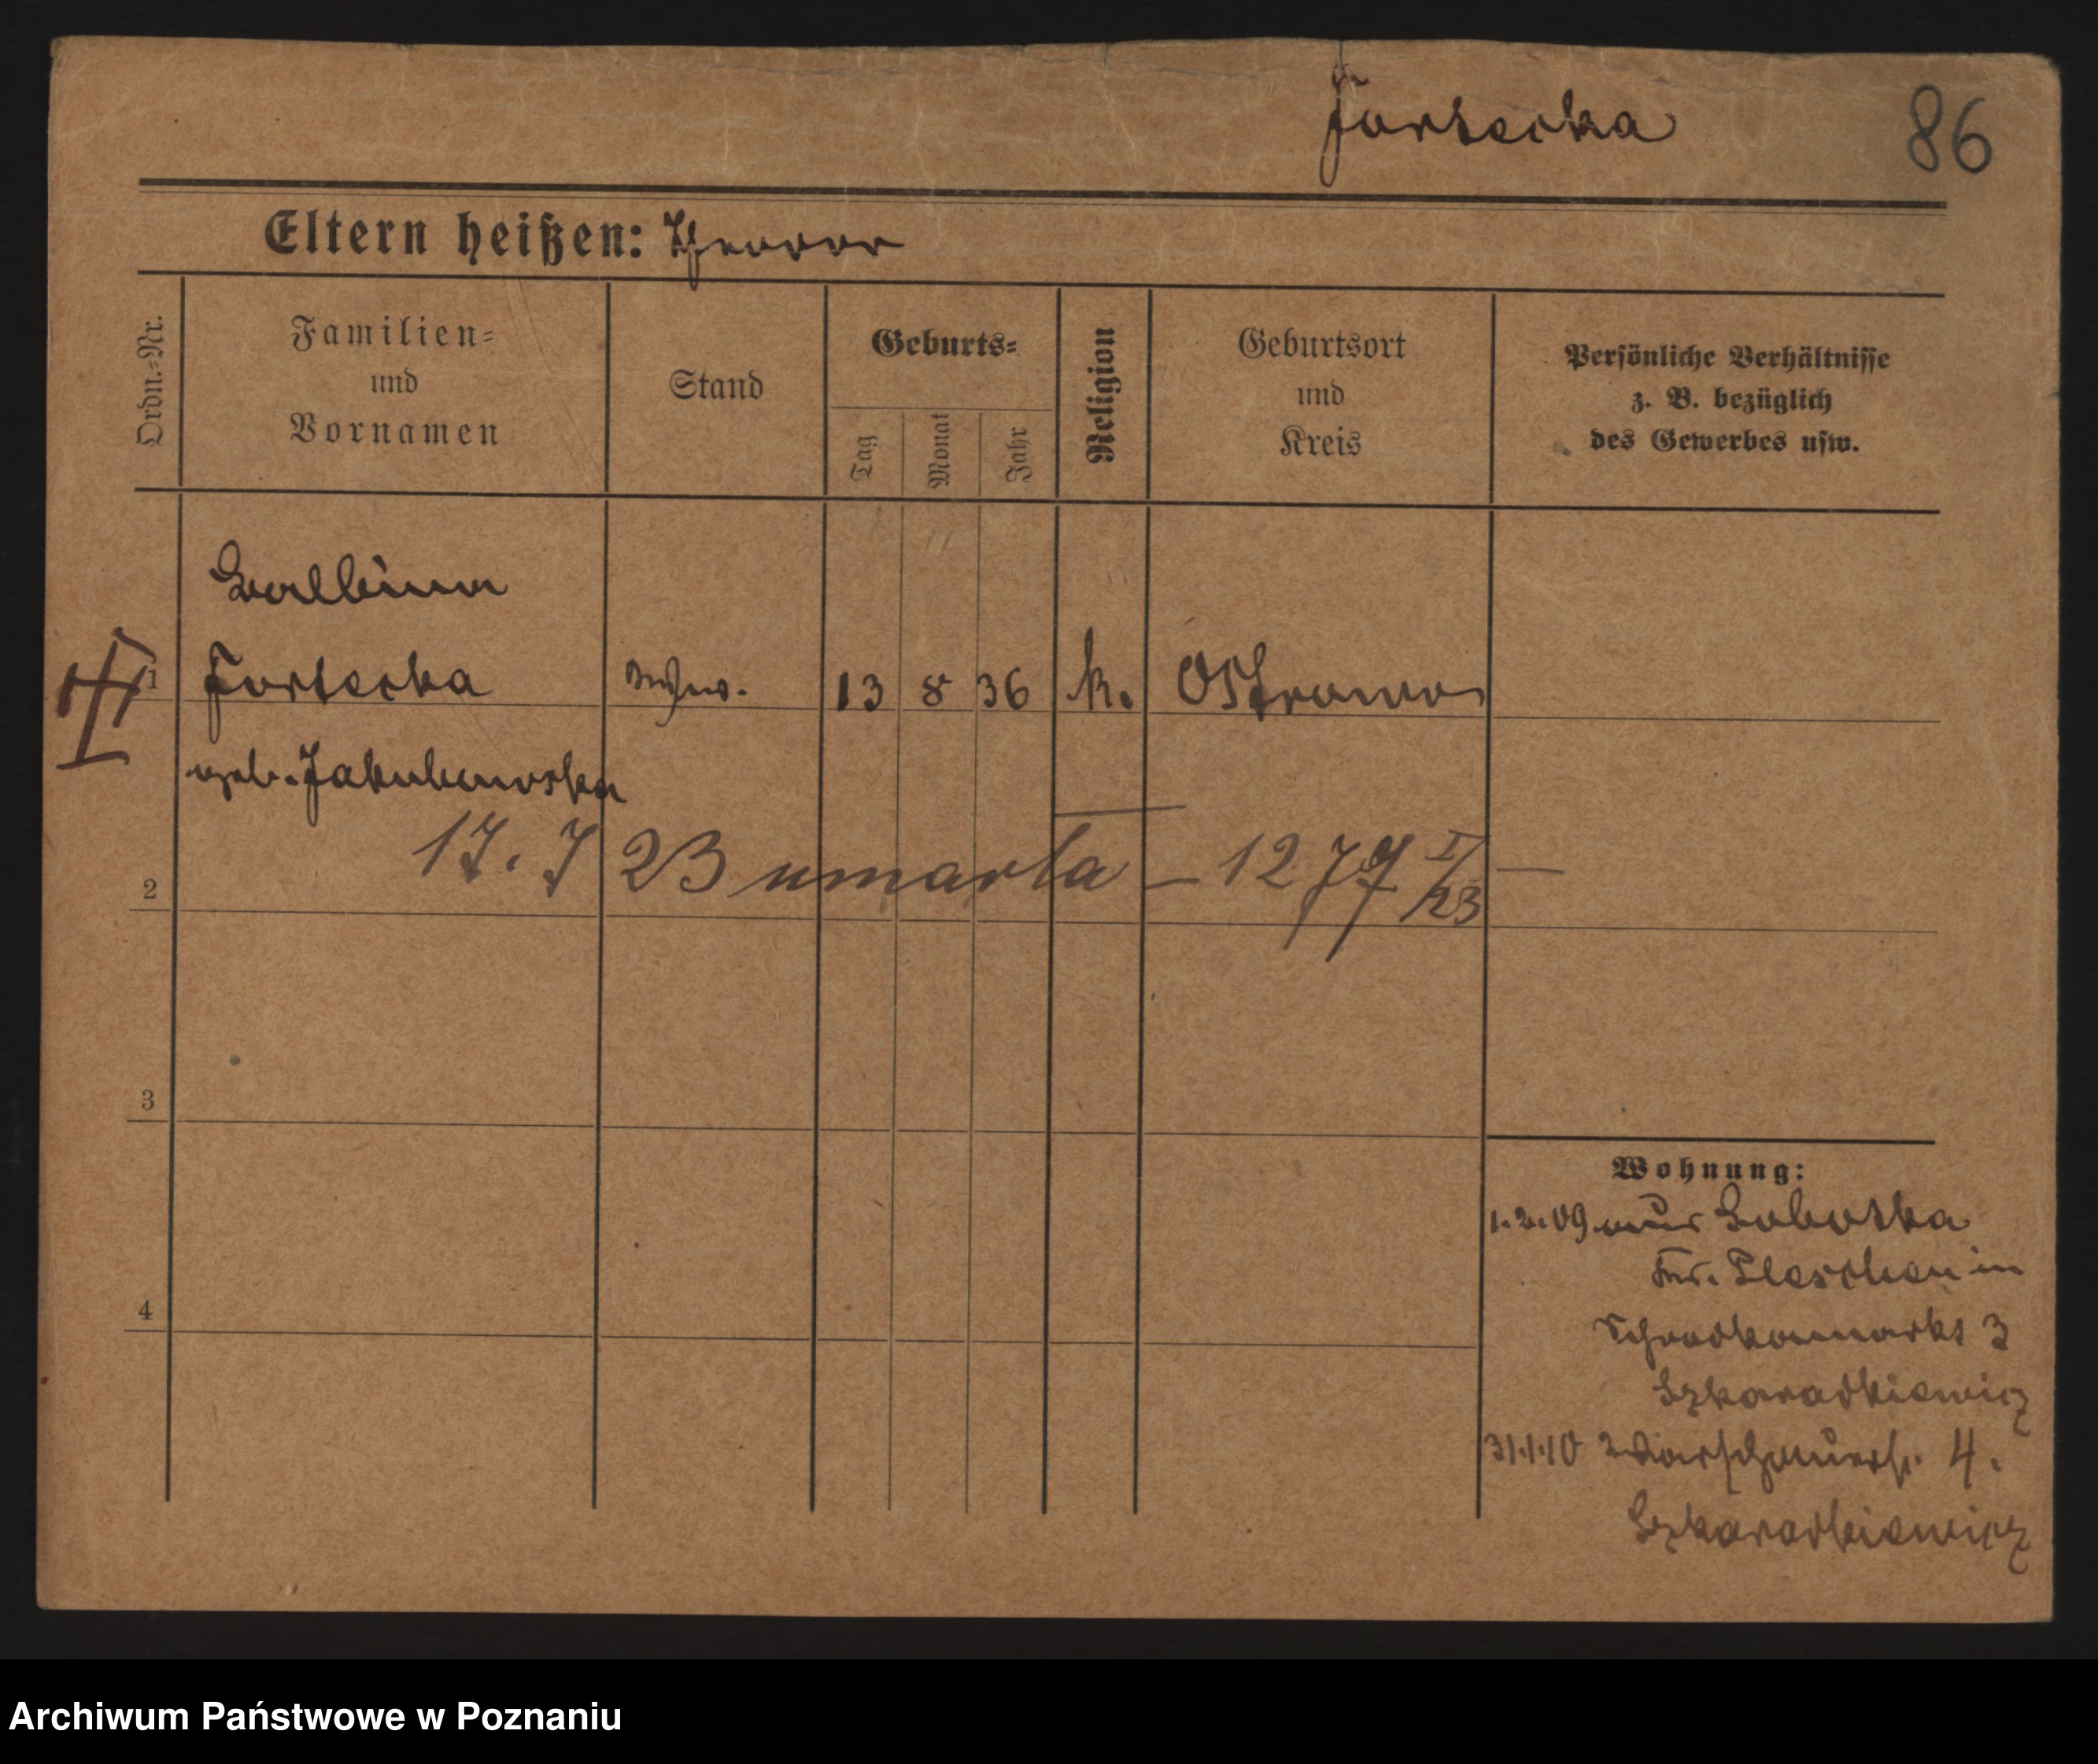 Fortecka
86
Eltern heißen:
Ordn.-Nr.
Familien-
und
Vornamen
Stand
Geburts-
Tag
Monat
Jahr
Religion
Geburtsort
und
Kreis
Persönliche Verhältnisse
z. B. bezüglich
des Gewerbes usw.
Balbina
1 Fortecka 13 8 36 k. Ostrowo
geb. Jakubowska
17. 7 23 umarła — 1279 I/23 —
2
3
4
Wohnung:
1.2.09 aus Sobotka
Kr. Pleschen in
Schrodkamarkt 3
Szkaradkiewicz
31.1.10 4.
Szkaradkiewicz
Archiwum Państwowe w Poznaniu